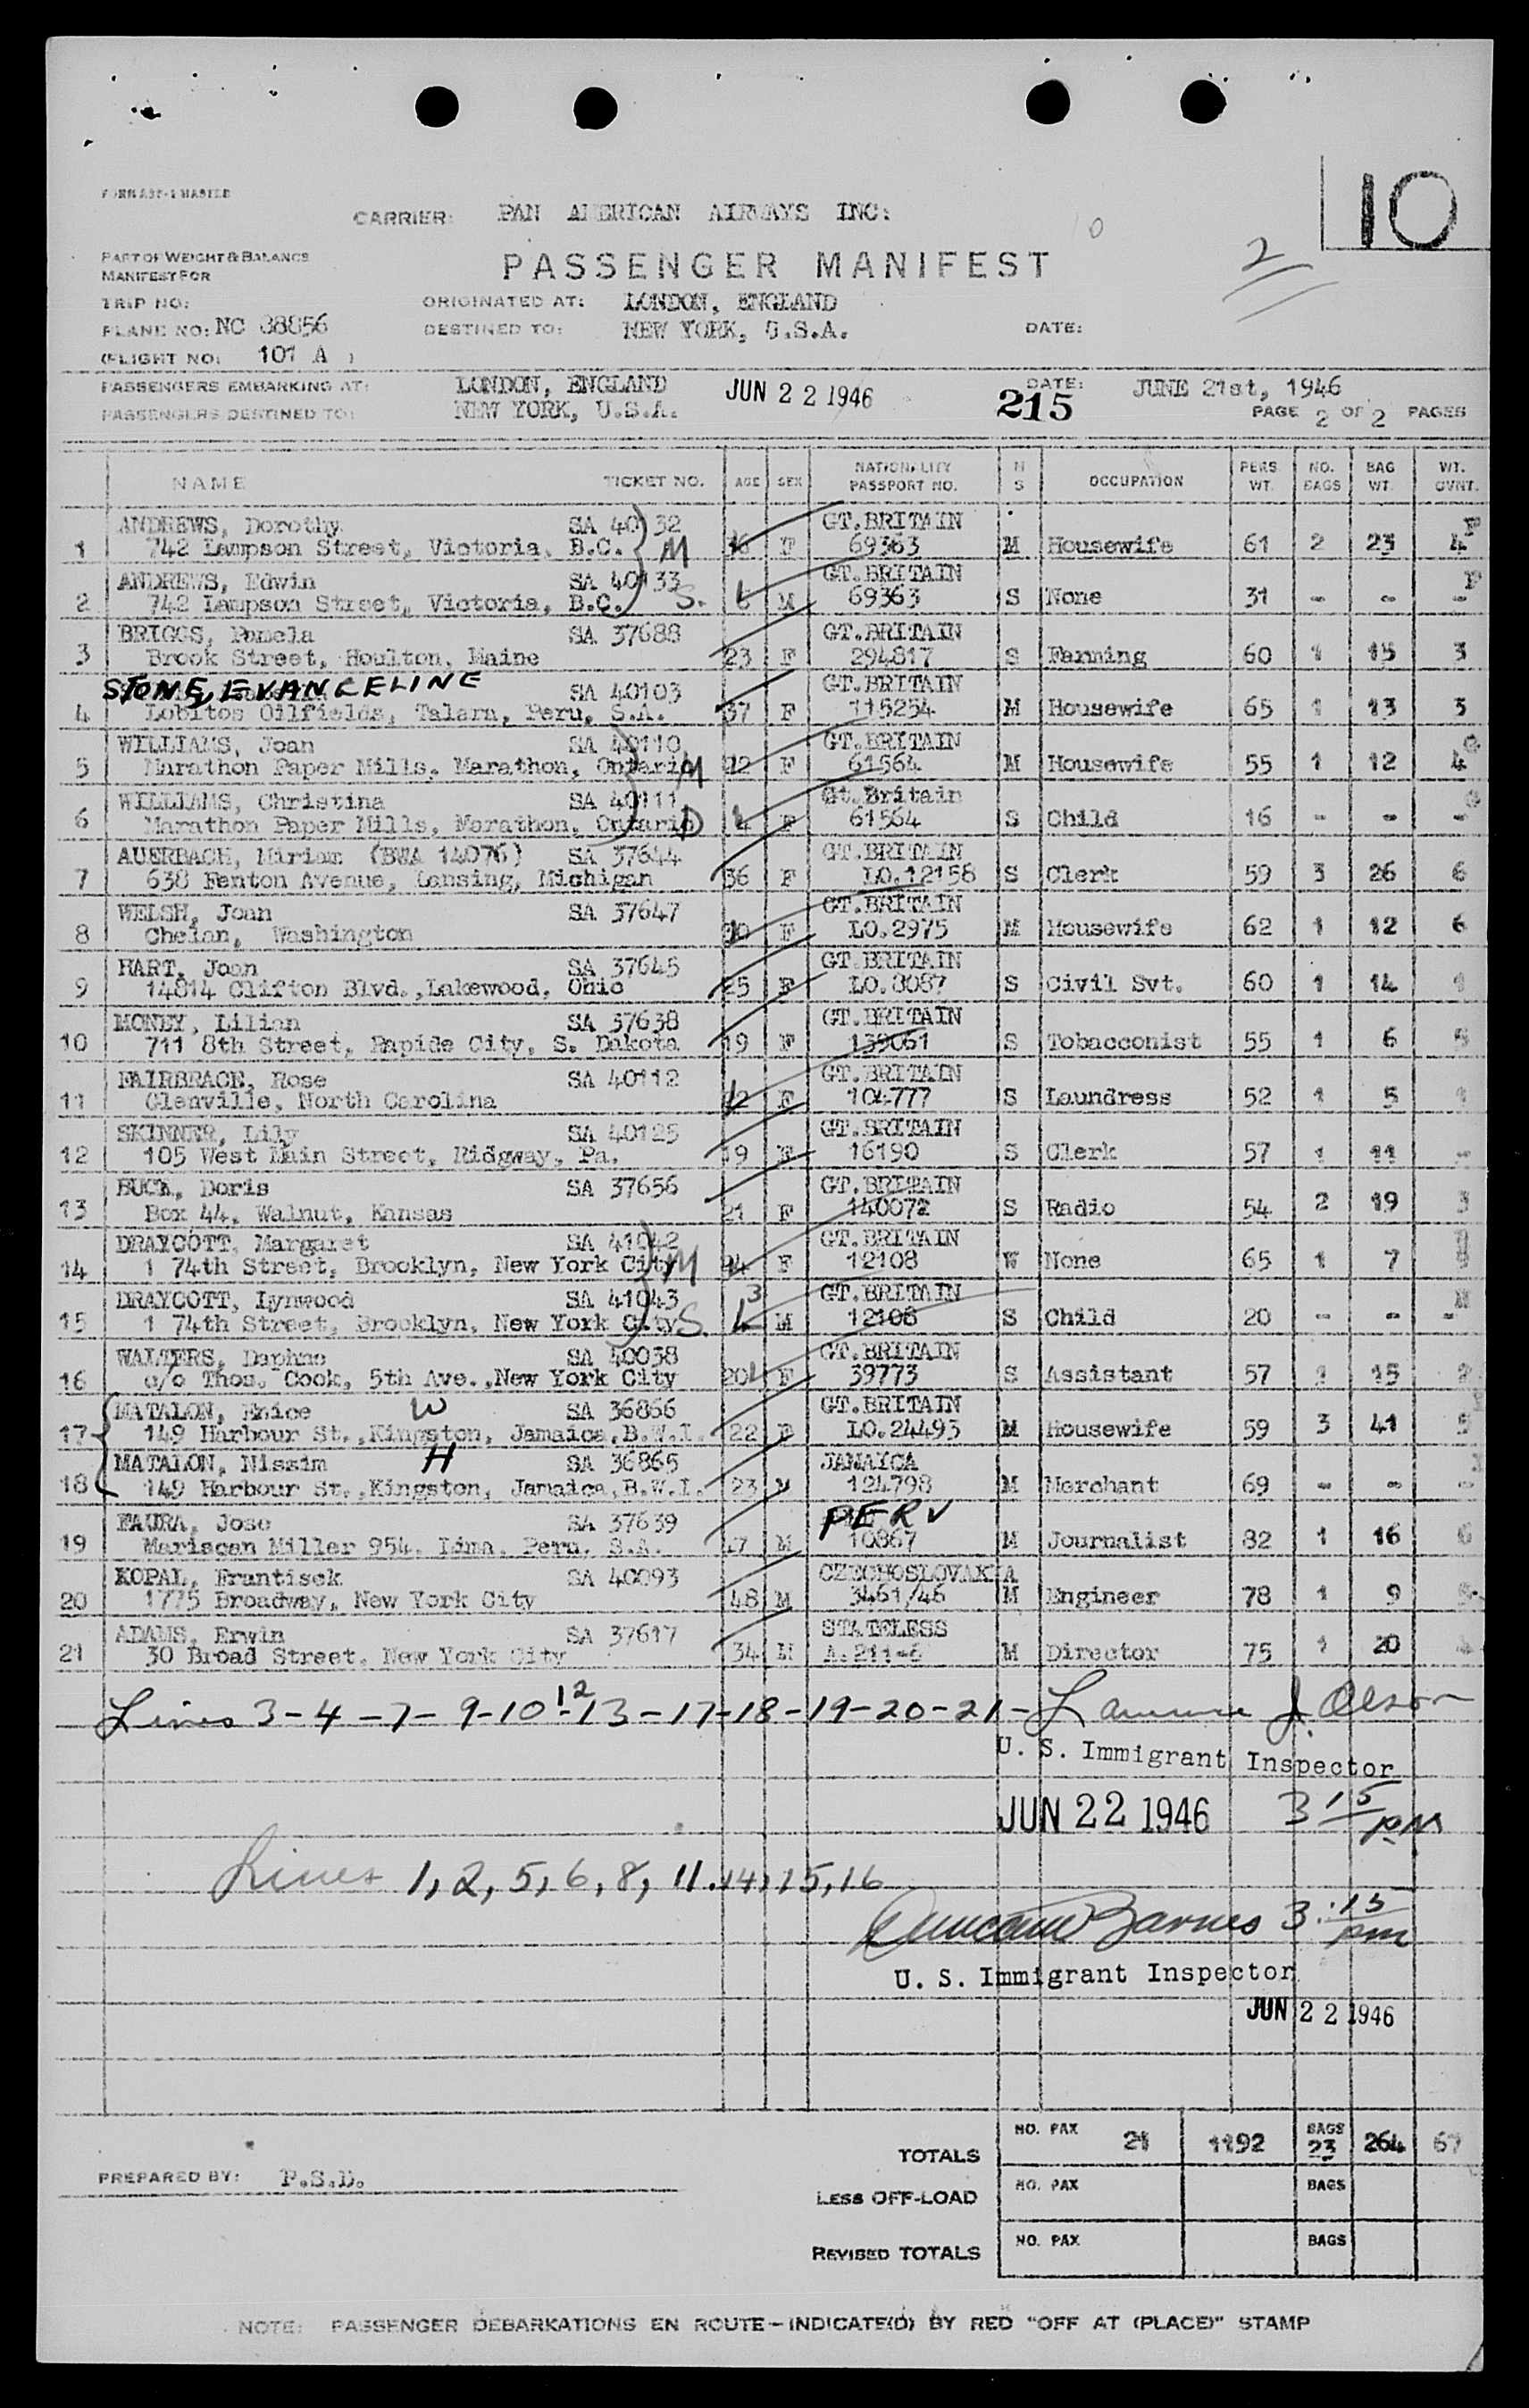 CARRIER: PAN AMERICAN AIRWAYS INC:
10
PART OF WEIGHT & BALANCE
MANIFEST FOR
PASSENGER MANIFEST
2
TRIP NO:
ORIGINATED AT: LONDON, ENGLAND
PLANE NO: NC 88856
DESTINED TO: NEW YORK, U.S.A.
DATE:
(FLIGHT NO: 101 A )
PASSENGERS EMBARKING AT: LONDON, ENGLAND
JUN 22 1946
DATE: JUNE 21st, 1946
PASSENGERS DESTINED TO: NEW YORK, U.S.A.
215
PAGE 2 OF 2 PAGES
NAME TICKET NO. AGE SEX NATIONALITY PASSPORT NO. M S OCCUPATION PERS WT. NO. BAGS BAG WT. WT. OVNT.
ANDREWS, Dorothy SA 40132 GT.BRITAIN F
1 742 Lampson Street, Victoria, B.C. M F 69363 M Housewife 61 2 23 4
ANDREWS, Edwin SA 40133 GT.BRITAIN F
2 742 Lampson Street, Victoria, B.C. S. 6 M 69363 S None 31 - - -
BRIGGS, Pamela SA 37688 GT.BRITAIN
3 Brook Street, Houlton, Maine 23 F 294817 S Farming 60 1 15 3
STONE, EVANGELINE SA 40103 GT.BRITAIN
4 Lobitos Oilfields, Talara, Peru, S.A. 37 F 115254 M Housewife 65 1 13 3
WILLIAMS, Joan SA 40110 GT.BRITAIN
5 Marathon Paper Mills, Marathon, Ontario M F 61564 M Housewife 55 1 12 4
WILLIAMS, Christina SA 40111 Gt.Britain
6 Marathon Paper Mills, Marathon, Ontario D 4 F 61564 S Child 16 - - -
AUERBACH, Miriam (BWA 14076) SA 37644 GT.BRITAIN
7 638 Fenton Avenue, Lansing, Michigan 36 F LO.12158 S Clerk 59 3 26 6
WELSH, Joan SA 37647 GT.BRITAIN
8 Chelan, Washington F LO.2975 M Housewife 62 1 12 6
HART, Joan SA 37645 GT.BRITAIN
9 14814 Clifton Blvd.,Lakewood, Ohio 25 F LO.8087 S Civil Svt. 60 1 14 1
MONEY, Lilian SA 37638 GT.BRITAIN
10 711 8th Street, Rapide City, S. Dakota 19 F 139061 S Tobacconist 55 1 6 5
FAIRBRACE, Rose SA 40112 GT.BRITAIN
11 Glenville, North Carolina F 104777 S Laundress 52 1 5 1
SKINNER, Lily SA 40125 GT.BRITAIN
12 105 West Main Street, Ridgway, Pa. 19 F 16190 S Clerk 57 1 11 -
BUCK, Doris SA 37656 GT.BRITAIN
13 Box 44, Walnut, Kansas 21 F 140072 S Radio 54 2 19 3
DRAYCOTT, Margaret SA 41042 GT.BRITAIN
14 1 74th Street, Brooklyn, New York City M F 12108 W None 65 1 7
DRAYCOTT, Lynwood SA 41043 3 GT.BRITAIN
15 1 74th Street, Brooklyn, New York City S. M 12108 S Child 20 - - -
WALTERS, Daphne SA 40038 GT.BRITAIN
16 c/o Thos. Cook, 5th Ave.,New York City 20 F 39773 S Assistant 57 1 15 2
MATALON, W SA 36866 GT.BRITAIN
17 149 Harbour St.,Kingston, Jamaica,B.W.I. 22 F LO.24493 M Housewife 59 3 41 5
MATALON, Nissim H SA 36865 JAMAICA
18 149 Harbour St.,Kingston, Jamaica,B.W.I. 23 M 124798 M Merchant 69 - - -
FAURA, Jose SA 37639 PERU
19 Mariscan Miller 954, Lima, Peru, S.A. 47 M 10867 M Journalist 82 1 16 6
KOPAL, Frantisek SA 40093 CZECHOSLOVAKIA
20 1775 Broadway, New York City 48 M 3461/46 M Engineer 78 1 9 5
ADAMS, Erwin SA 37617 STATELESS
21 30 Broad Street, New York City 34 M A.211-6 M Director 75 1 20 4
Lines 3-4-7-9-10-12-13-17-18-19-20-21- Lawrence J. Olson
U. S. Immigrant Inspector
JUN 22 1946 3 15 PM
Lines 1, 2, 5, 6, 8, 11, 14, 15, 16
Duncan Barnes 3:15 pm
U. S. Immigrant Inspector
JUN 22 1946
TOTALS NO. PAX 21 1192 BAGS 23 264 67
PREPARED BY: P.S.D.
LESS OFF-LOAD NO. PAX BAGS
REVISED TOTALS NO. PAX BAGS
NOTE: PASSENGER DEBARKATIONS EN ROUTE—INDICATE(D) BY RED "OFF AT (PLACE)" STAMP